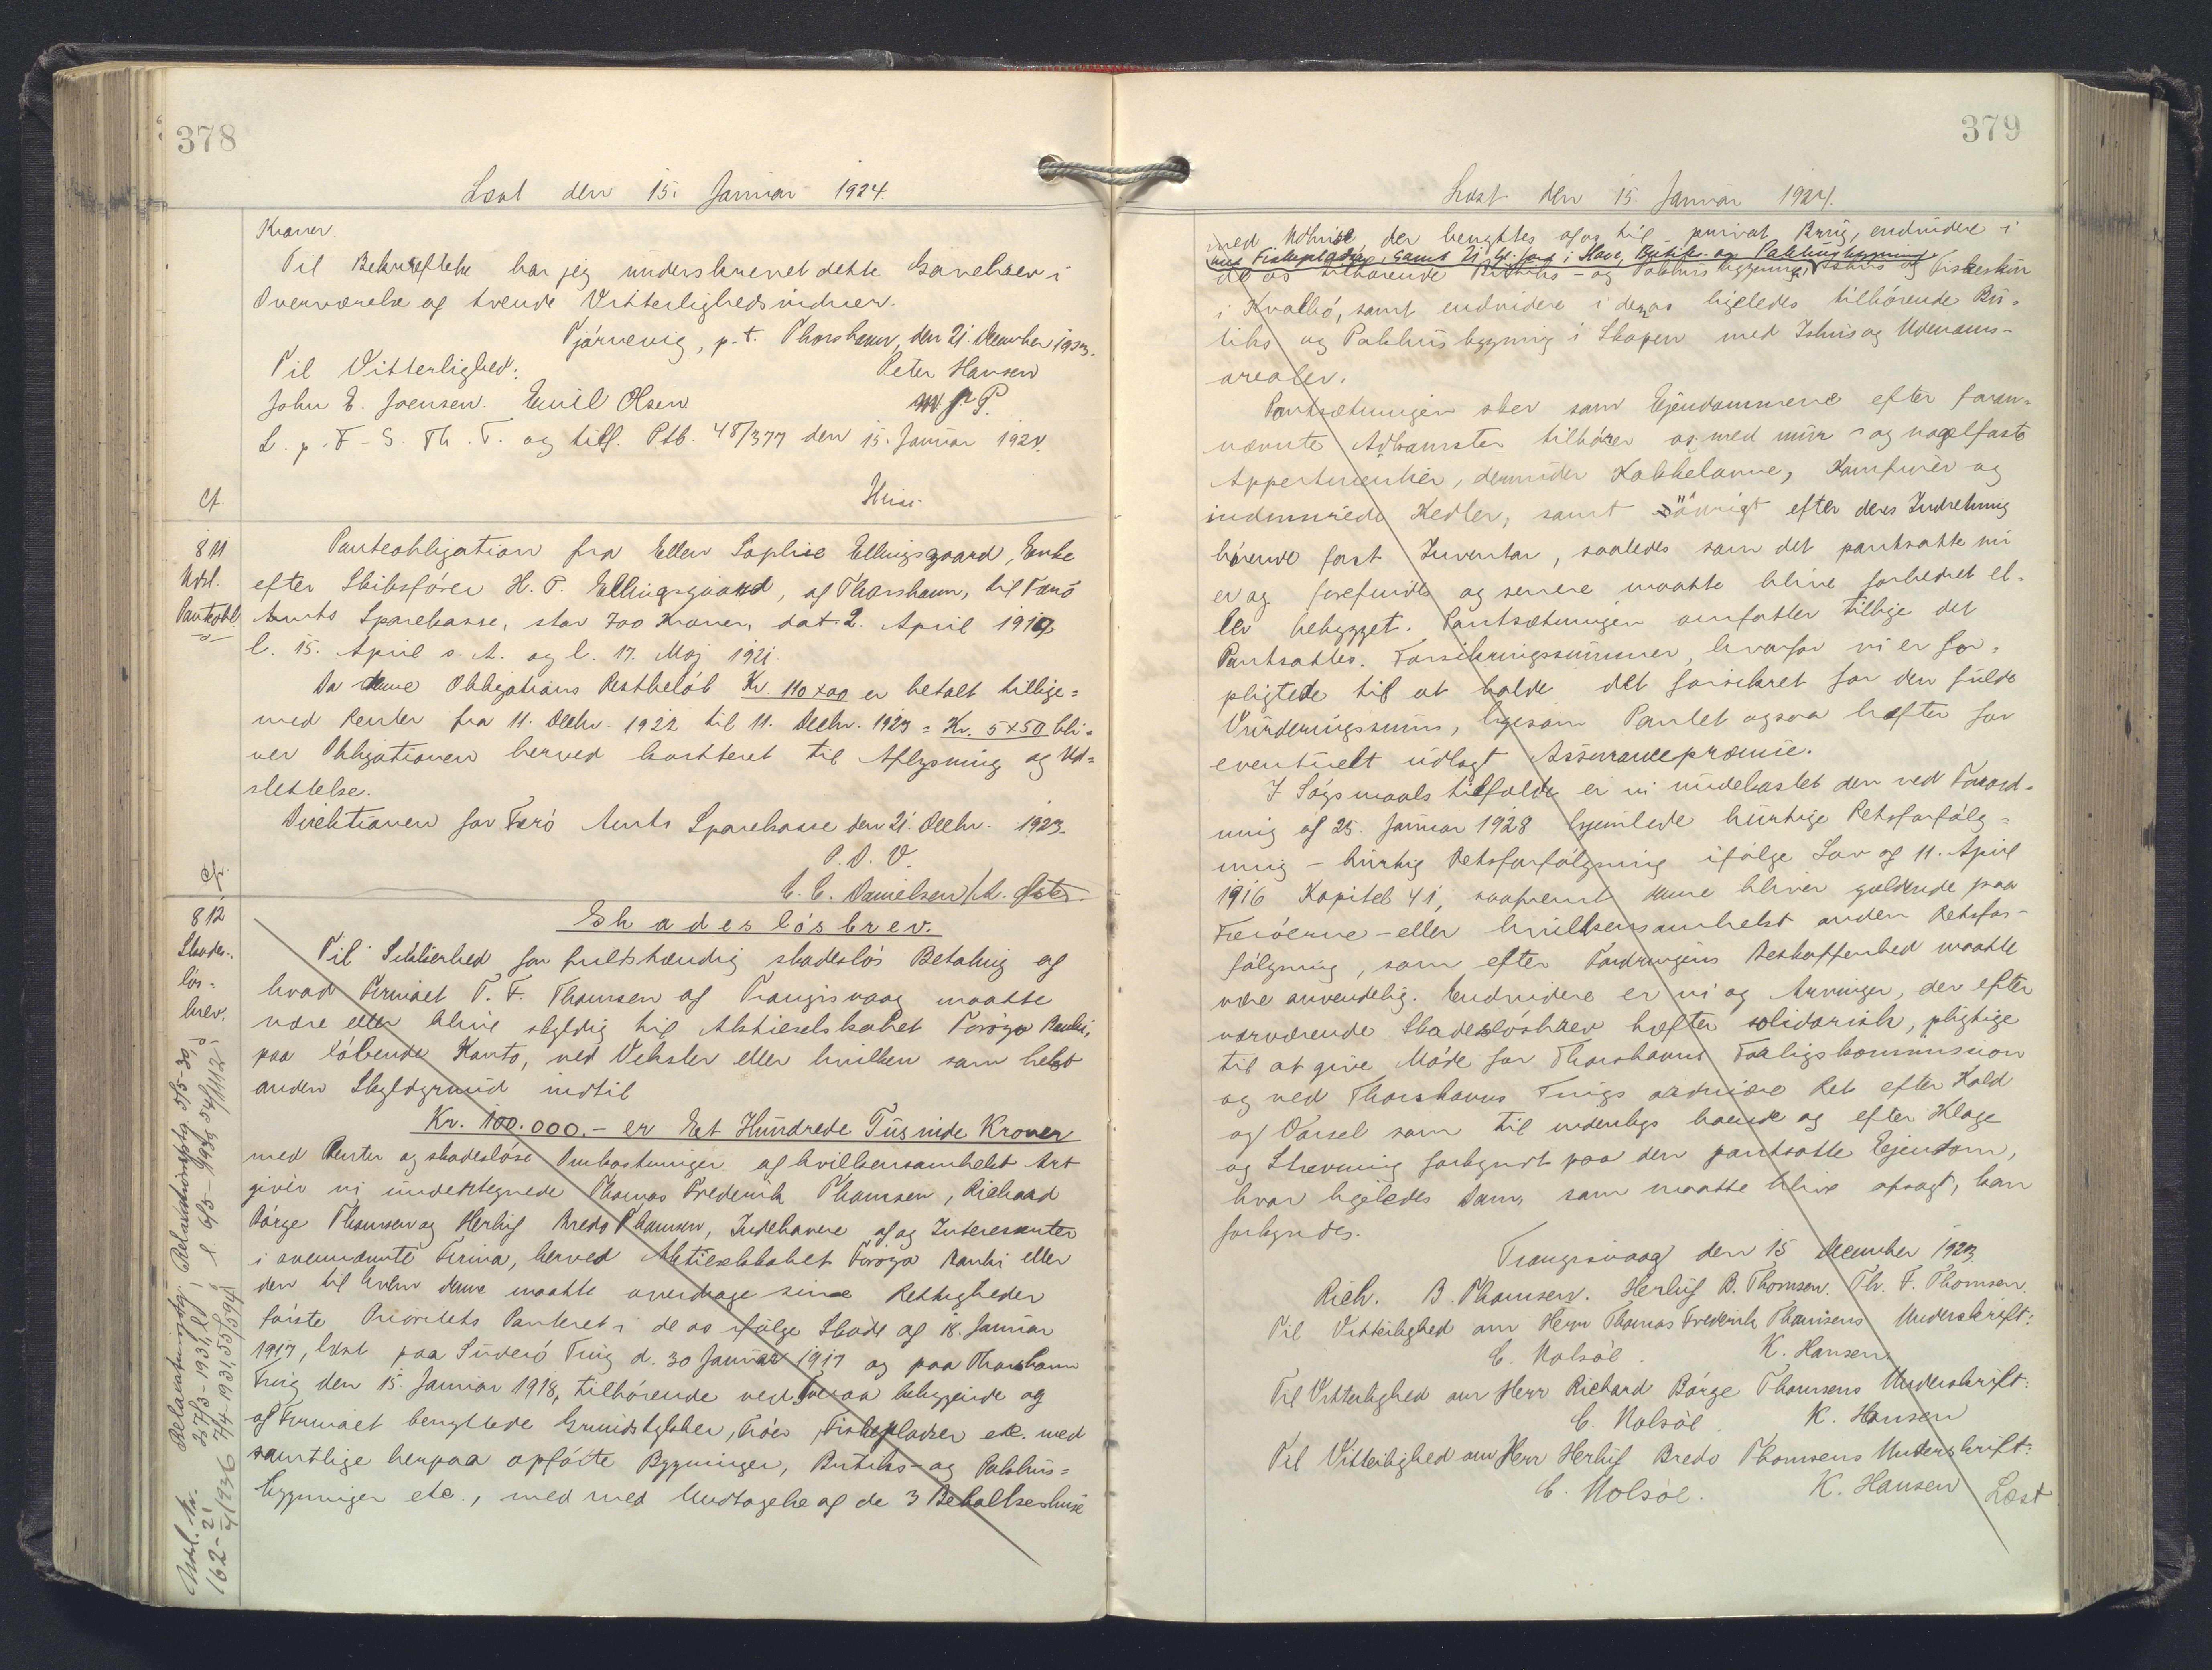 378
Læst den 15. Januar 1924.
Kroner.
Til Bekræftelse har jeg underskrevet dette Gavebrev i
Overværelse af tvende Vitterlighedsvidner.
Tjörnevig, p.t. Thorshavn, den 21. December 1923.
Til Vitterlighed: Peter Hansen
John E. Joensen. Emil Olsen m. f. P.
L. p. F-S. Th. T. og tilf. Ptb. 48/377 den 15. Januar 1924.
Cf.
811
Udsl.
Panteobl.
Panteobligation fra Ellen Sophie Ellingsgaard, Enke
efter Skibsfører H. P. Ellingsgaard, af Thorshavn, til Færö
Amts Sparekasse, stor 700 Kroner, dat. 2. April 1919,
l. 15. April s. A. og l. 17. Maj 1921.
Da denne Obligations Restbelöb Kr. 110x00 er betalt tillige=
med Renter fra 11. Decbr. 1922 til 11. Decbr. 1923 = Kr. 5x50 bli-
ver Obligationen herved kvitteret til Aflysning og Ud=
slettelse.
Direktionen for Færö Amts Sparekasse den 21. Decbr. 1923.
P. D. V.
C. C. Danielsen
Cf.
812
Skades-
lös-
brev.
Skadeslösbrev.
Til Sikkerhed for fuldstændig skadeslös Betaling af
hvad Firmaet T. F. Thomsen af Trangisvaag maatte
være eller blive skyldig til Aktieselskabet Foröya Banki,
paa löbende Konto, ved Veksler eller hvilken som helst
anden Skyldgrund indtil
Kr. 100.000.- er Et Hundrede Tusinde Kroner
med Renter og skadeslöse Omkostninger af hvilkensomhelst Art
giver vi undertegnede Thomas Frederik Thomsen, Richard
Börge Thomsen og Herluf Bredo Thomsen, Indehavere af og Interessenter
i ovennævnte Firma, herved Aktieselskabet Foröya Banki eller
den til hvem denne maatte overdrage sine Rettigheder
förste Prioritets Panteret i de os ifölge Sköde af 18. Januar
1917, læst paa Suderö Ting d. 30 Januar 1917 og paa Thorshavn
Ting den 15. Januar 1918, tilhörende ved Tveraa beliggende og
af Firmaet benyttede Grundstykker, Fiskepladser etc. med
samtlige herpaa opförte Bygninger, Butiks- og Pakhus=
bygninger etc., med med Undtagelse af de 3 Beboelseshuse
Relaxationspåt. 5/5-30,
l. 6/5-1930 54/1112
27/3-1931, lyst
7/4-1931, 55/594
Udsl. Nr.
162-2/1936
379
Læst den 15. Januar 1924.
med Udhuse der benyttes af os til privat Brug, endvidere i
med Fiskeplads, samt Butiks- og Pakhusbygning
de os tilhörende Butiks- og Pakhusbygning, Ishus og Fiskeskur
i Kvalbö, samt endvidere i de os ligeledes tilhörende Bu-
tiks og Pakhusbygning i Skopen med Ishus og Udenoms-
arealer.
Pantsætningen sker som Ejendommene efter foran-
nævnte Adkomster tilhörer os med mur- og nagelfaste
Appertinentier, derunder Kakkelovne, Komfurer og
indmurede Kedler, samt övrigt efter deres Indretning
hörende fast Inventar, saaledes som det pantsatte nu
er og forefindes og senere maatte blive forbedret el-
ler bebygget. Pantsætningen omfatter tillige det
Pantsattes Forsikringssummer, hvorfor vi er for=
pligtede til at holde det forsikret for den fulde
Vurderingssum, ligesom Pantet ogsaa hæfter for
eventuelt udlagt Assurancepræmie.
I Sögsmaals tilfælde er vi underkastet den ved Forord-
ning af 25. Januar 1928 hjemlede hurtige Retsforfölg=
ning - hurtig Retsforfölgning ifölge Lov af 11. April
1916 Kapitel 41, saafremt denne bliver gældende paa
Færöerne - eller hvilkensomhelst anden Retsfor-
fölgning, som efter Fordringens Beskaffenhed maatte
være anvendelig. Endvidere er vi og Arvinger, der efter
nærværende Skadeslösbrev hæfter solidarisk, pligtige
til at give Möde for Thorshavns Forligskommission
og ved Thorshavns Tings ordinære Ret efter Kald
og Varsel som til indenbys boende og efter Klage
og Stævning forkyndt paa den pantsatte Ejendom,
hvor ligeledes Dom, som maatte blive afsagt, kan
forkyndes.
Trangisvaag den 15 December 1923
Rich. B. Thomsen. Herluf B. Thomsen. Th. F. Thomsen.
Til Vitterlighed om Herr Thomas Frederik Thomsens Underskrift:
C. Nolsöe. K. Hansen
Til Vitterlighed om Herr Richard Börge Thomsens Underskrift:
C. Nolsöe. K. Hansen
Til Vitterlighed om Herr Herluf Bredo Thomsens Underskrift:
C. Nolsöe. K. Hansen Læst